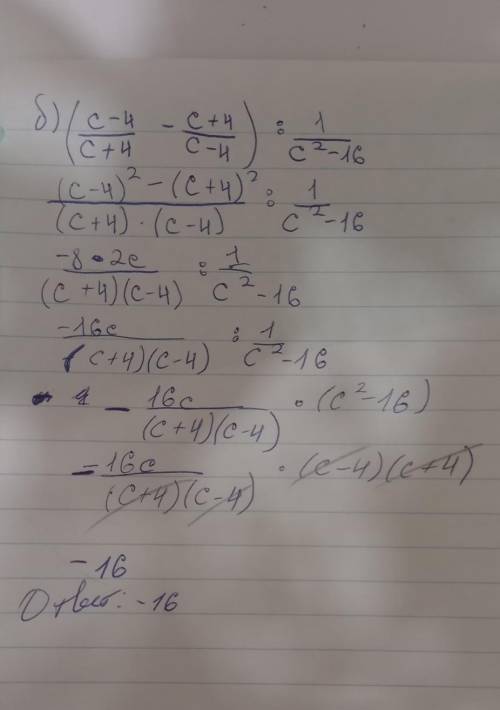 б) ((c-4)/(c+4) - (c+4)/(c-4)) : 1/(c²-16)
((c-4)² - (c+4)²)/((c+4)·(c-4)) : 1/(c²-16)
(-8·2c)/((c+4)(c-4)) : 1/(c²-16)
(-16c)/((c+4)(c-4)) : 1/(c²-16)
- 16c/((c+4)(c-4)) · (c²-16)
-16c/((c+4)(c-4)) · (c-4)(c+4)
-16
Ответ: -16